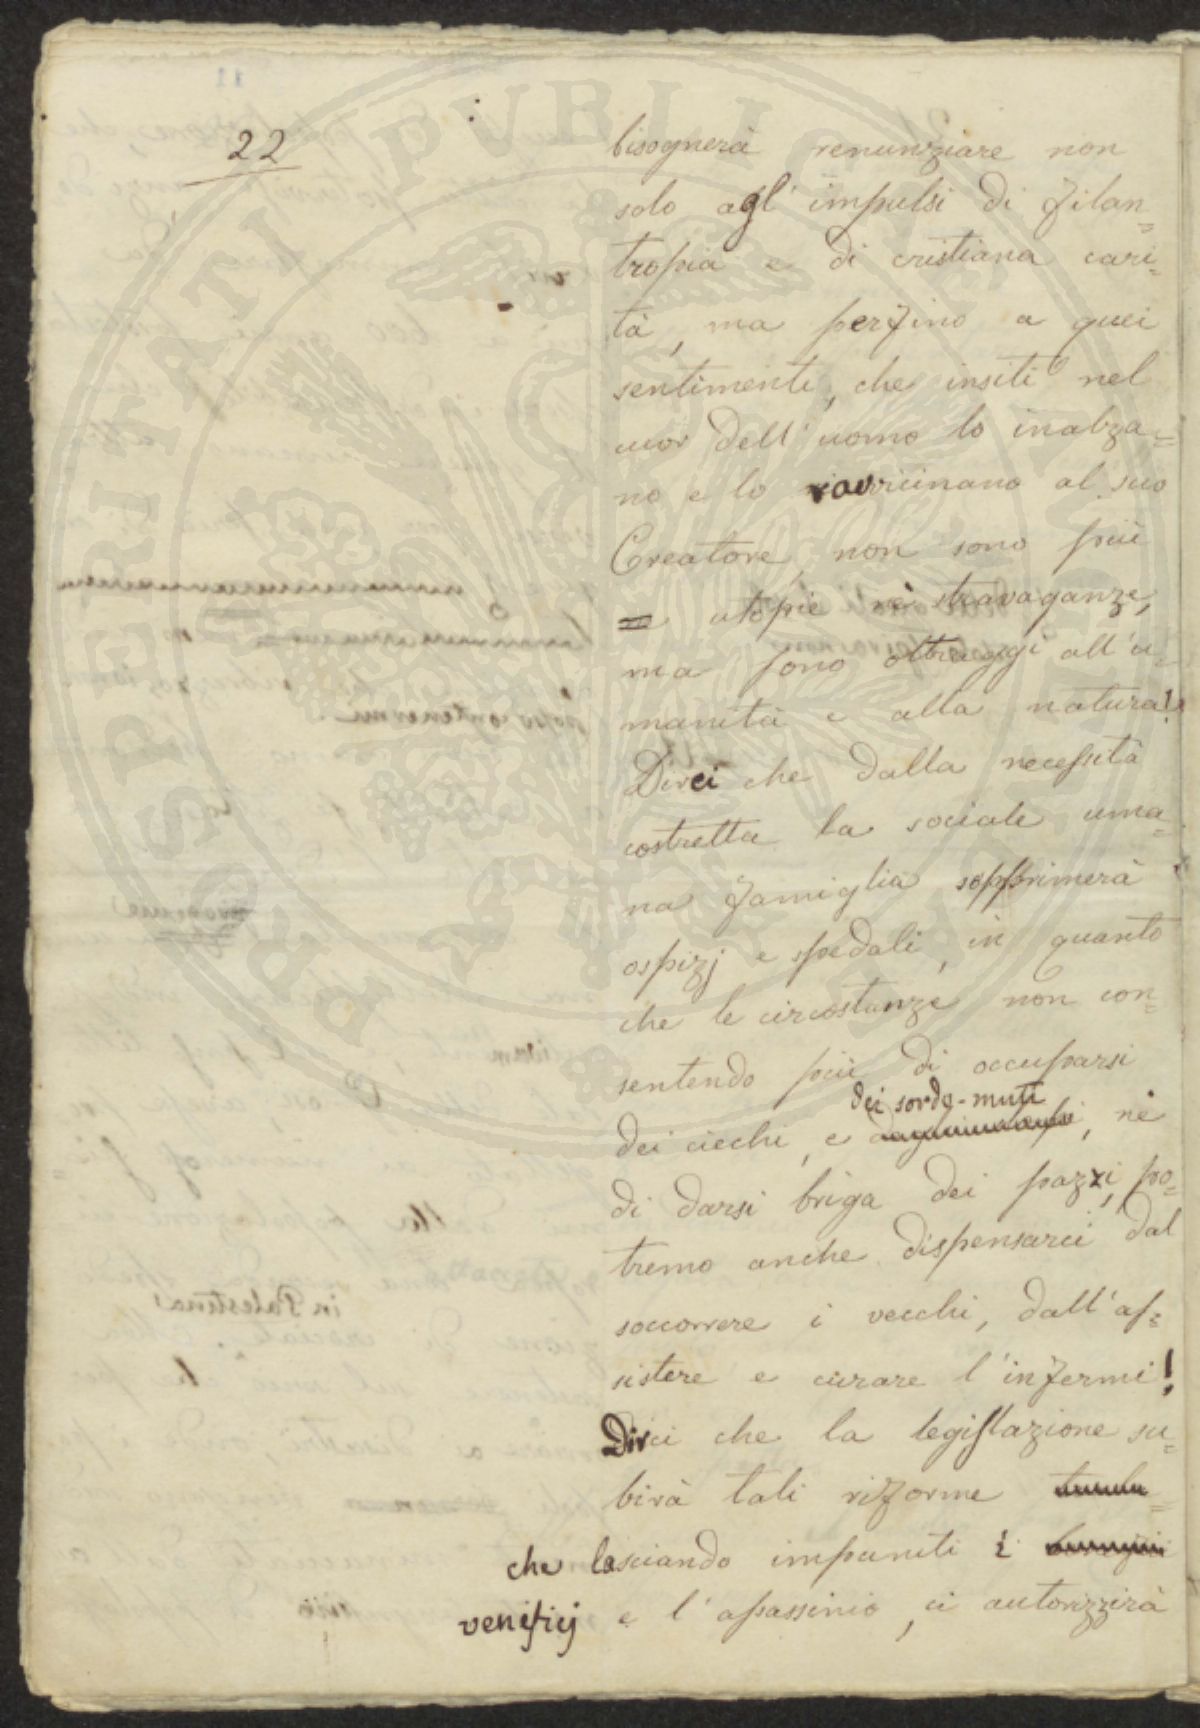 22
bisognerà renunziare non
solo agl'impulsi di filan=
tropia e di cristiana cari=
tà, ma perfino a quei
sentimenti, che insiti nel
cuor dell'uomo lo inalza=
no e lo ravvicinano al suo
Creatore, non sono più
= utopie nè stravaganze,
ma sono oltraggi all'u=
manità e alla natura!
Dirci che dalla necessità
costretta la sociale uma=
na famiglia sopprimerà
ospizj e spedali, in quanto
che le circostanze non con=
sentendo più di occuparsi
dei sordo-muti
dei ciechi, e, nè
di darsi briga dei pazzi, po=
tremo anche dispensarci dal
soccorrere i vecchi, dall'as=
sistere e curare l'infermi!
Dirci che la legislazione su=
birà tali riforme
che lasciando impuniti i
venifizj e l'assassinio, ci autorizzirà
PROSPERITATI PVBLICAE